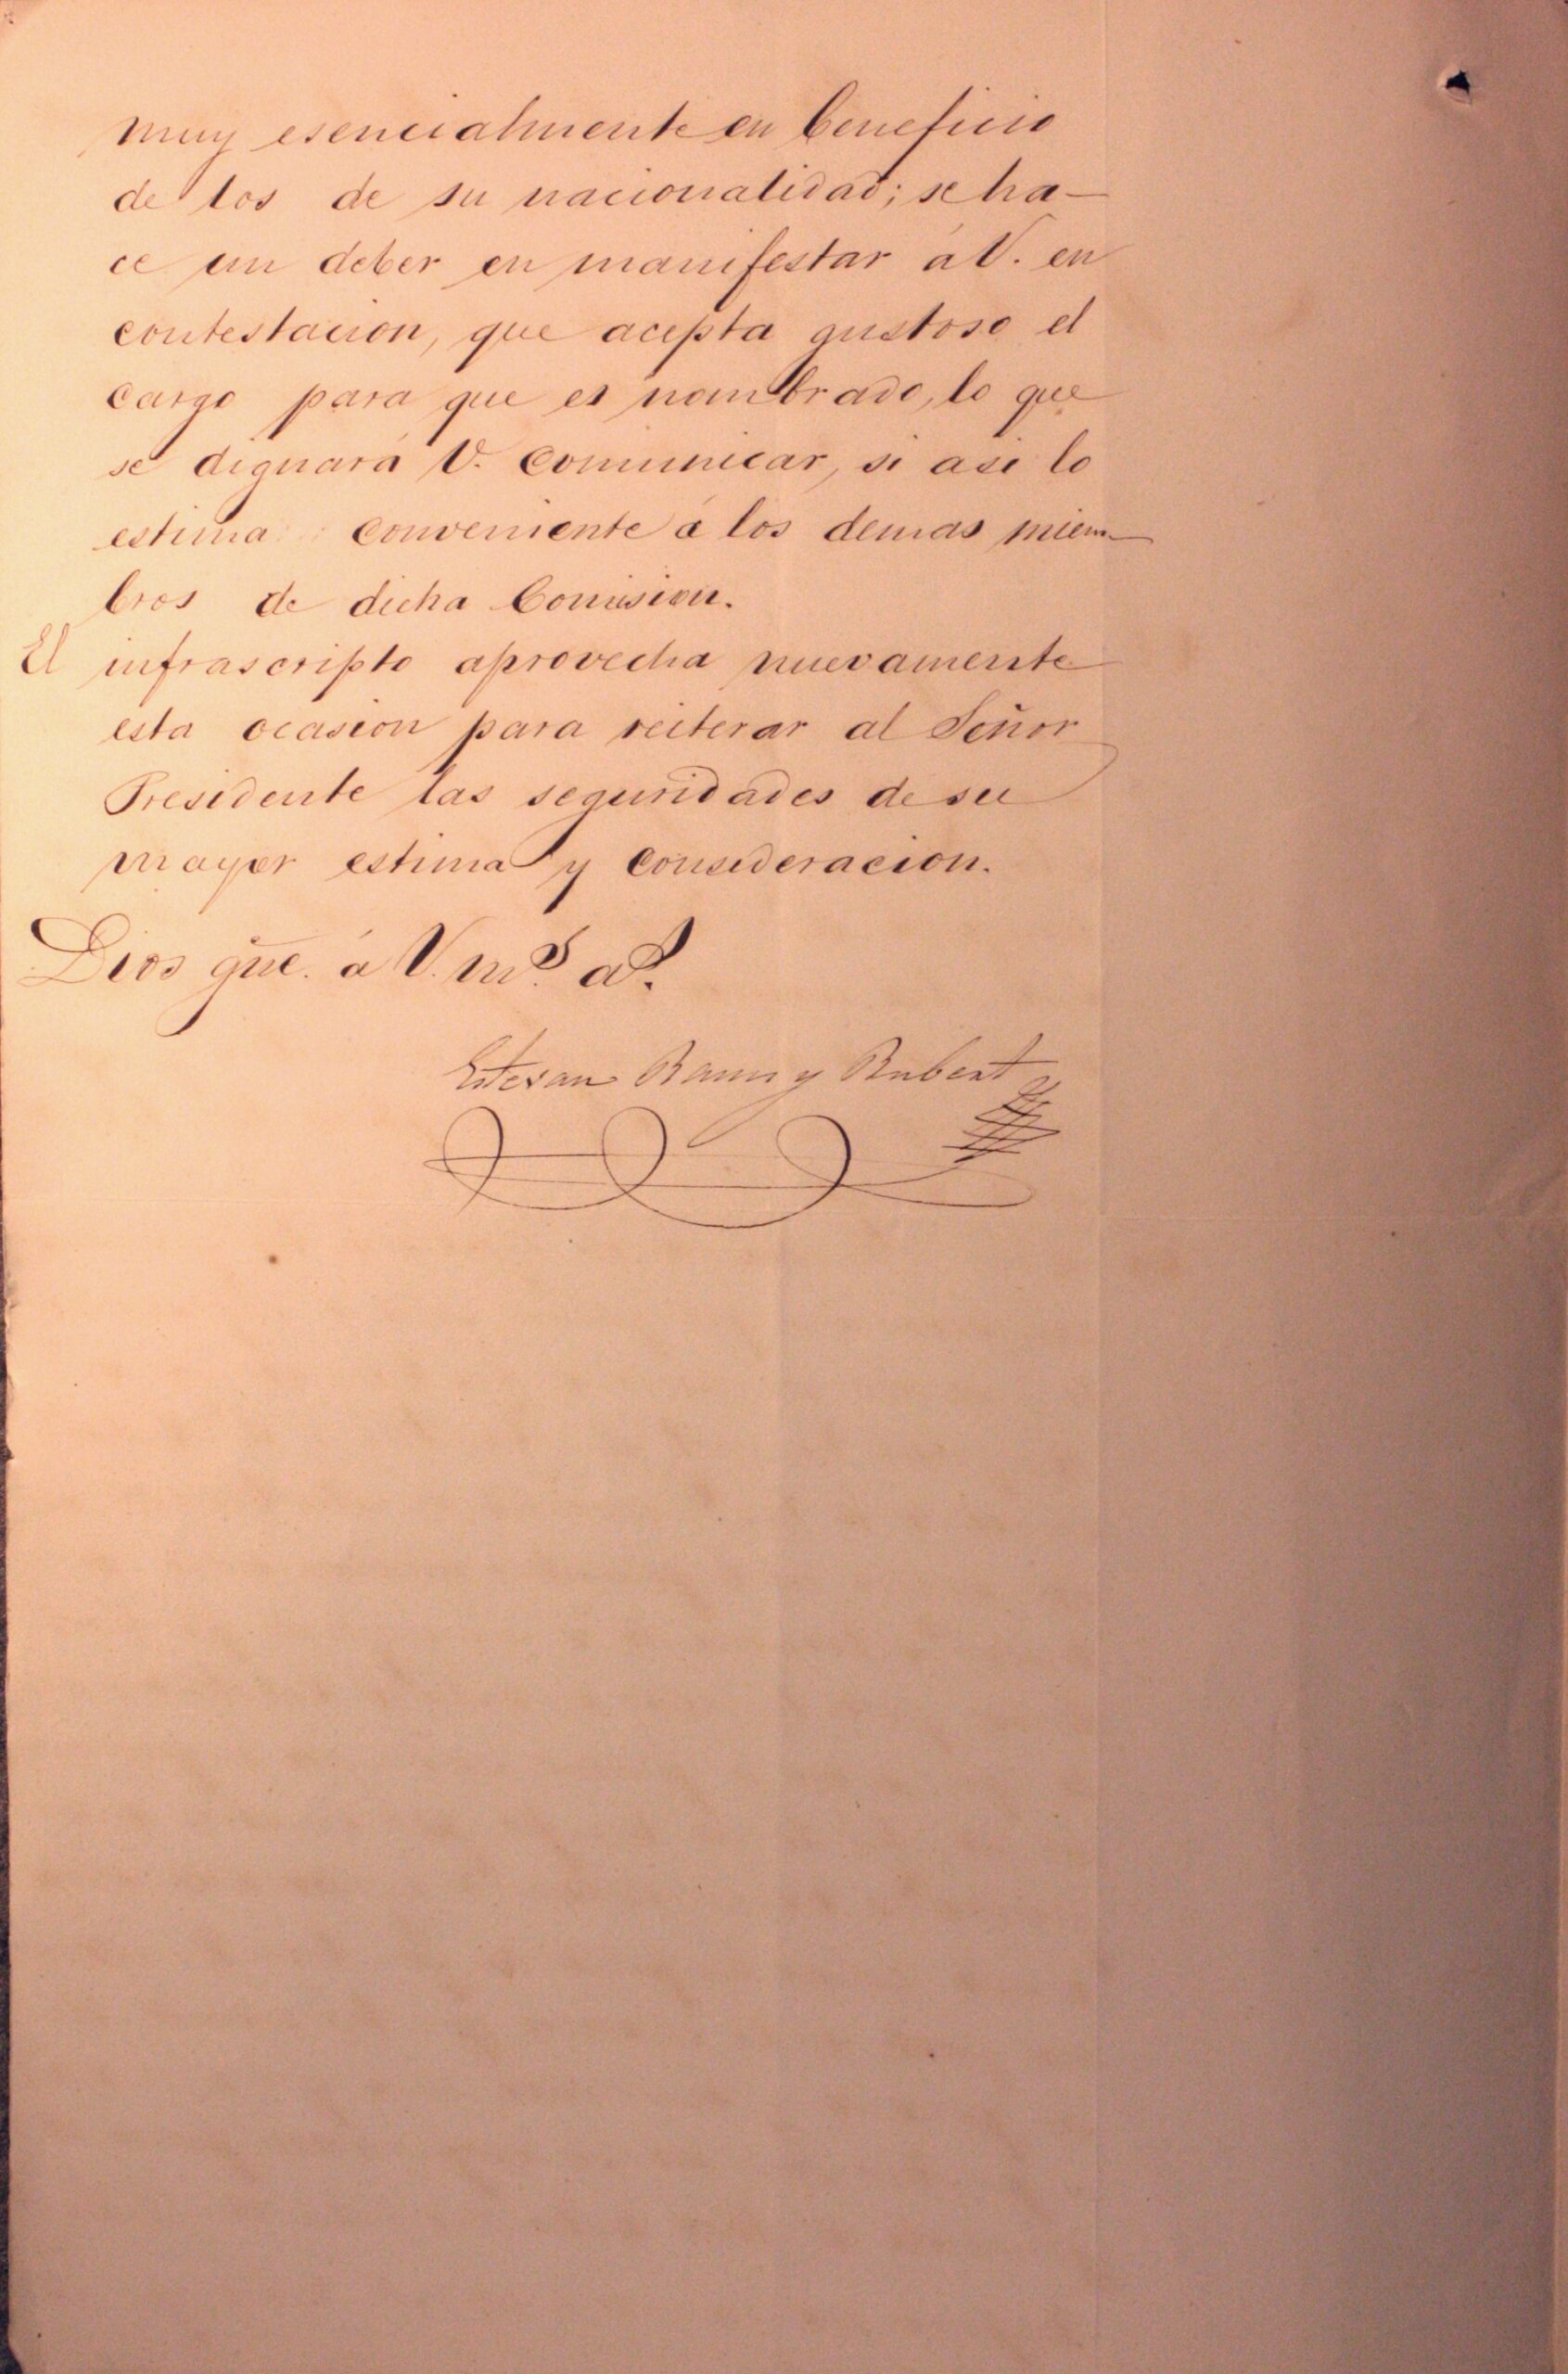 muy esencialmente en beneficio
de los de su nacionalidad; se ha-
ce un deber en manifestar á V. en
contestacion, que acepta gustoso el
cargo para que es nombrado, lo que
se dignará V. comunicar, si asi lo
estima conveniente á los demas miem-
bros de dicha Comision.
El infrascripto aprovecha nuevamente
esta ocasion para reiterar al Señor
Presidente las seguridades de su
mayor estima y consideracion.
Dios gũe. á V. mˢ. aˢ.
Estevan Ranus y Rubert